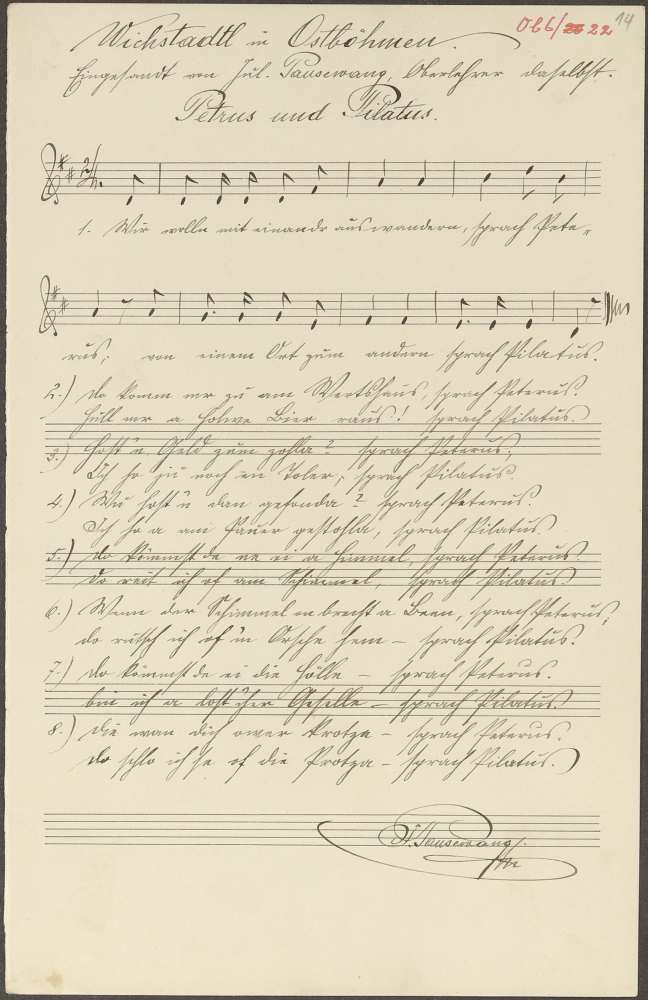 Ob6/ 22 14
Wichstadtl in Ostböhmen.
Eingesandt von Jul. Pausewang, Oberlehrer daselbst.
Petrus und Pilatus.
1. Wir wolln mit einandr auswandern, sprach Pete-
rus; von einem Ort zum andern sprach Pilatus.
2.) Do komm mr zu am Wertshaus, sprach Peterus.
Hull mr a holwe Bier raus! sprach Pilatus.
3.) Host'n Geld zum zohla? sprach Peterus;
Ich ho ju noch en Toler, sprach Pilatus.
4.) Wu host'n dan gefonda? sprach Peterus.
Ich ho a am Pauer gestohla, sprach Pilatus.
5.) Do kömmst de ne ei a Himmel, sprach Peterus
Do reit ich of am Schimmel, sprach Pilatus.
6.) Wenn dar Schimmel brecht a Been, sprach Peterus,
do rutsch ich of'm Orsche hem – sprach Pilatus.
7.) Do kömmst de ei die Hölle – sprach Peterus.
bin ich a lost'cher Geselle – sprach Pilatus.
8.) Die wan dich ower krotza – sprach Peterus.
Do schlo ich se of die Protza – sprach Pilatus.
J. Pausewang